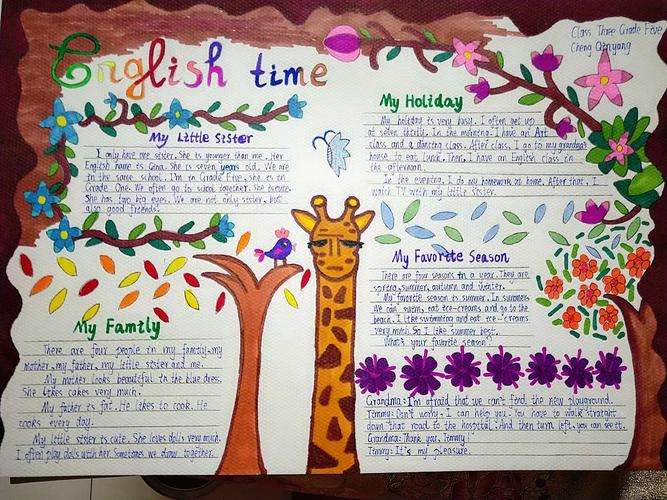 English time
Class Three Grade Five
Cheng
My Little Sister
I only have one sister. She is younger than me. Her
English name is Gina. She is seven years old. We are
in the same school. I'm in Grade Five, she is in
Grade One. We often go to school together. She is cute.
She has two big eyes. We are not only sister, but
also good friends.
My Holiday
My holiday is very busy. I often get up
at seven thirty. In the morning. I have an Art
class and a dancing class. After class, I go to my grandma's
house to eat lunch. Then, I have an English class in
the afternoon.
In the evening, I do my homework at home. After that, I
watch TV with my little sister.
My Favorite Season
There are four seasons in a year. They are
spring, summer, autumn and winter.
My favorite season is summer. In summer,
we can swim, eat ice-creams and go to the
beach. I like swimming and eat ice-creams
very much. So I like summer best.
What's your favorite season?
My Family
There are four people in my family, my
mother, my father, my little sister and me.
My mother looks beautiful in the blue dress.
She likes cakes very much.
My father is fat. He likes to cook. He
cooks every day.
My little sister is cute. She loves dolls very much.
I often play dolls with her. Sometimes we draw together.
Grandma: I'm afraid that we can't find the new playground.
Timmy: Don't worry. I can help you. You have to walk straight
down that road to the hospital. And then turn left, you can see it.
Grandma: Thank you, Timmy!
Timmy: It's my pleasure.